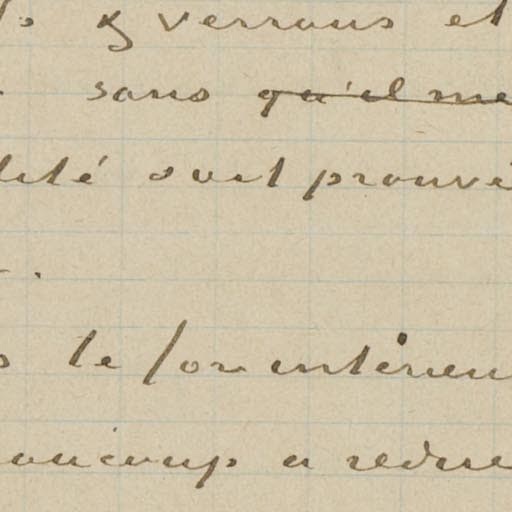 & verrons et
sans ~~qu'el me~~
lité soit prouvé
le for intérieur
aucoup a redire